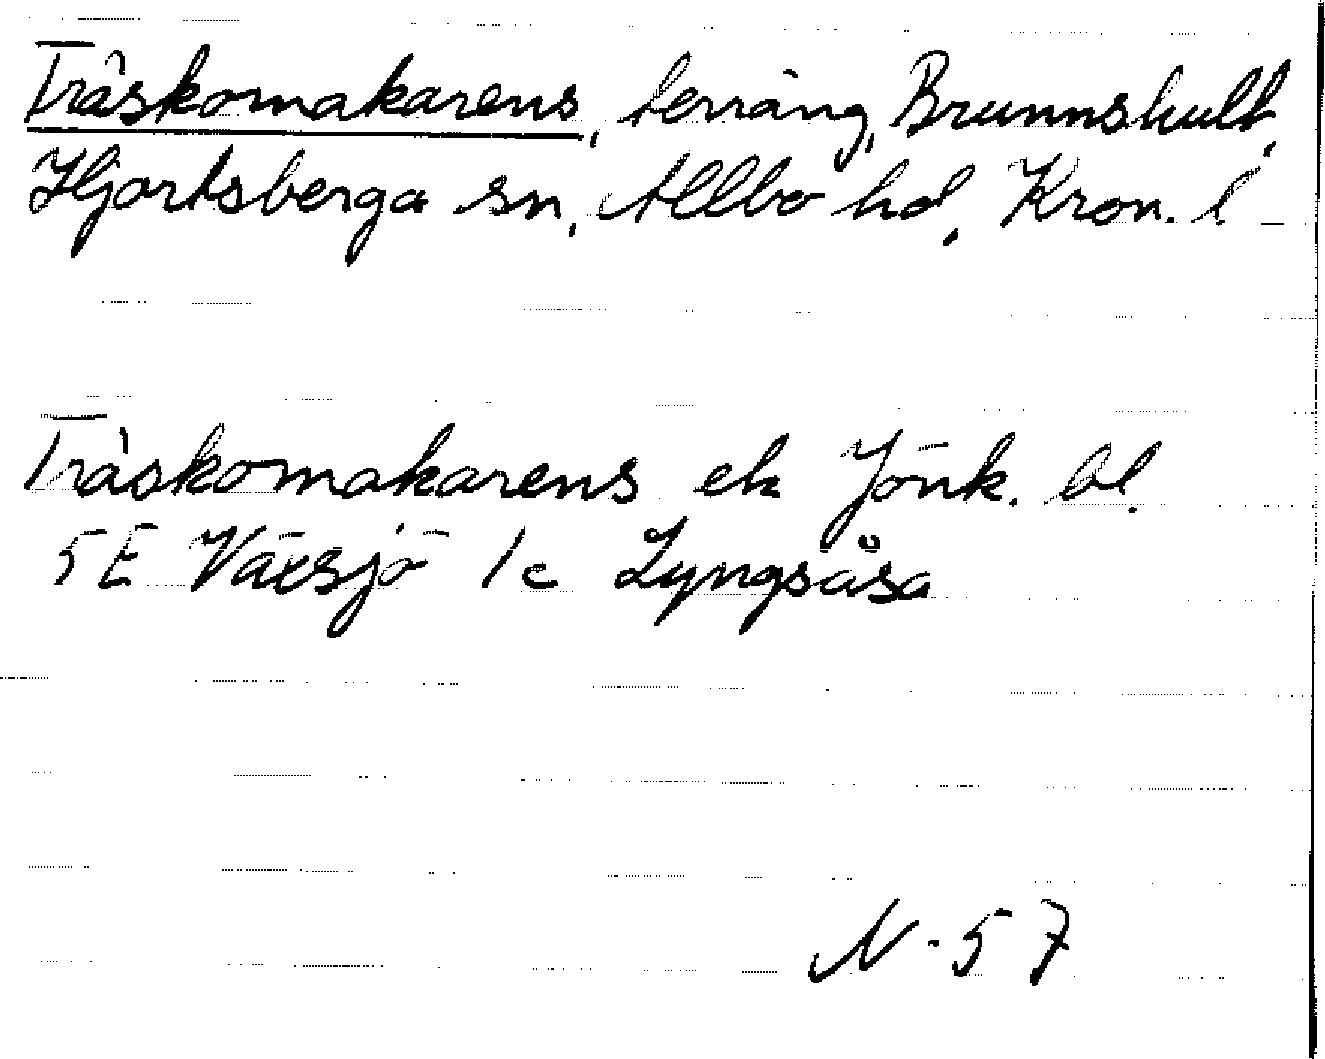 Träskomakarens, terräng, Brunnshult,
Hjortsberga sn, Allbo hd, Kron. l
Träskomakarens ek Jönk. bl.
5E Växsjö 1c Lyngsåsa
N-57